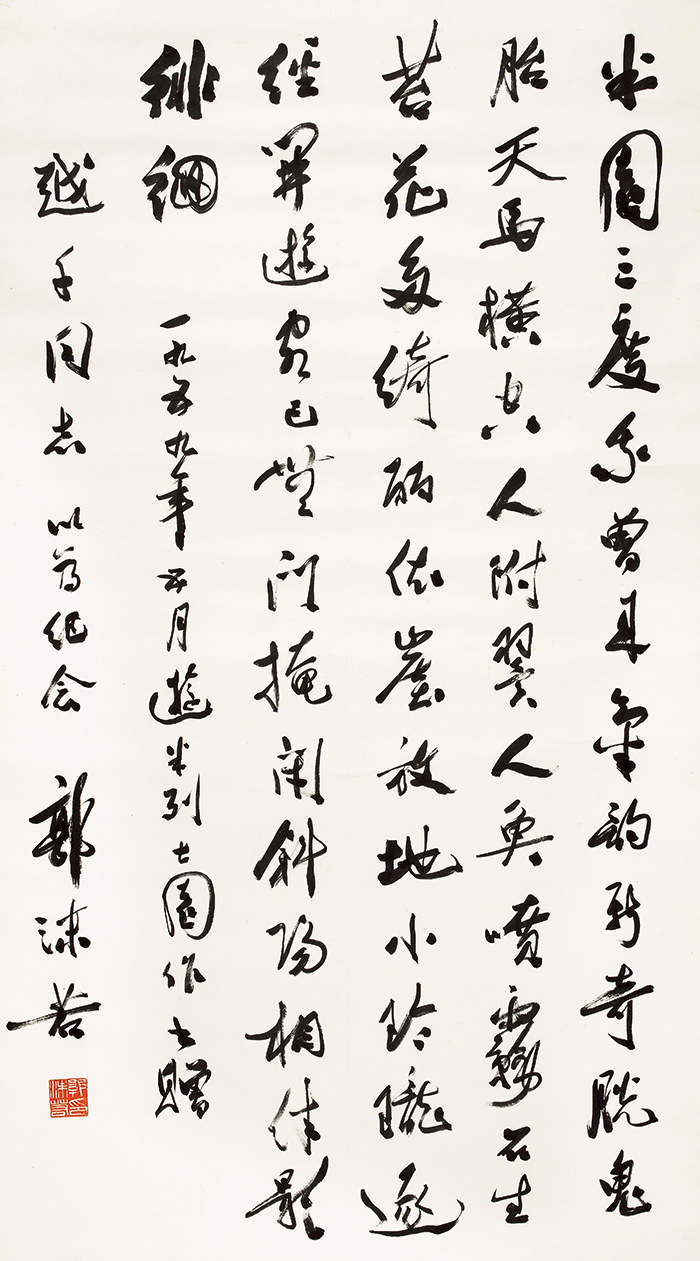 米園三度我曾来氣韵新奇脱鬼
胎天馬横空人附翼人魚噴霧石生
苔花多綺丽依崖放地小玲瓏逐
徑開遊客已無门掩閉斜陽相伴影
徘徊 一九五九年五月遊米列士園作书贈
越千同志 以为纪念 郭沫若
郭沫若